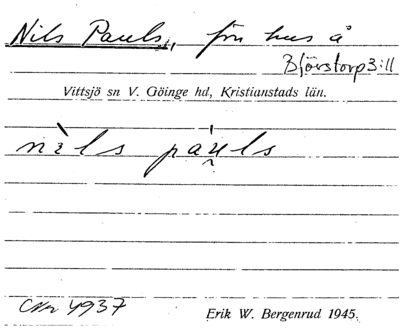 Nils Pauls, förr hus å
Björstorp 3:11
Vittsjö sn V. Göinge hd, Kristianstads län.
nìls pa̍u̯ls
4937
Erik W. Bergenrud 1945.